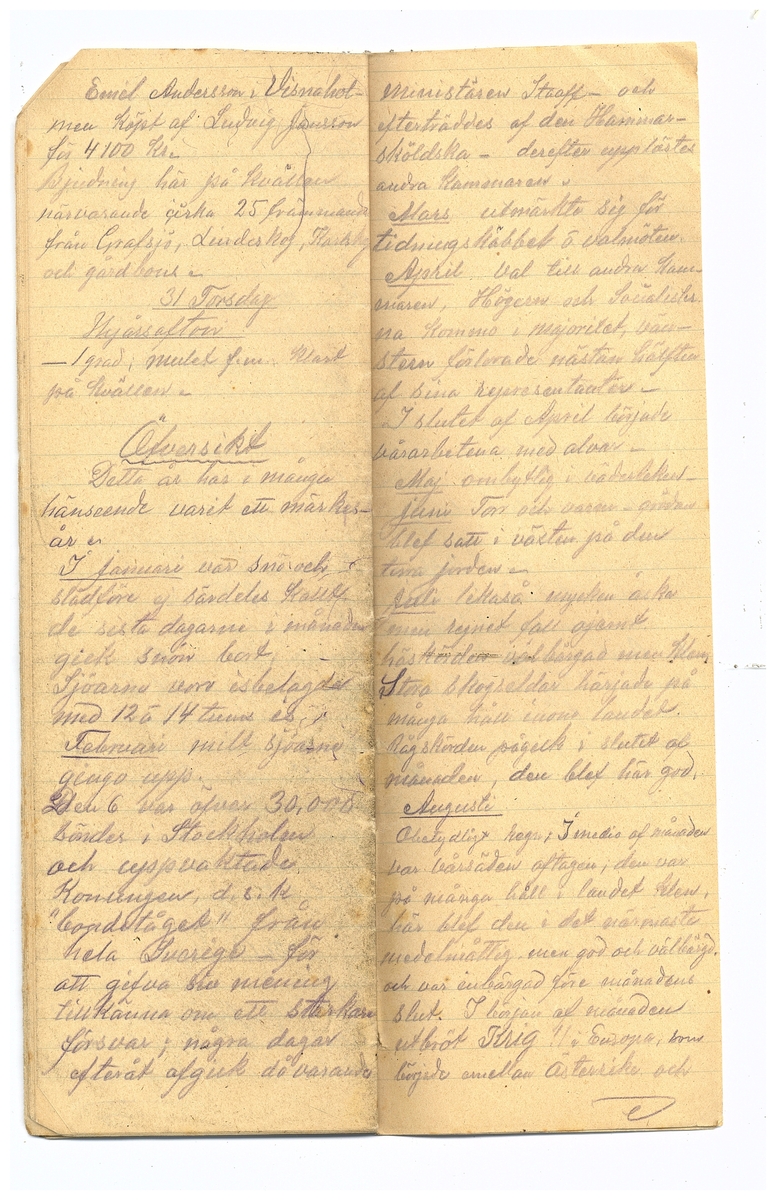 Emil Andersson i Visnahol-
men köpt af Ludvig Jansson
för 4100 Kr.
Bjudning här på kvällen
närvarande cirka 25 främmande
från Grafsjö, Lindeskog,
och gårdbons.
31 Torsdag
Nyårsafton
– 1 grad, mulet f.m. klart
på kvällen.
Öfversikt
Detta år har i många
hänseende varit ett märkes-
år.
I Januari var snö och
slädföre ej särdeles kallt,
de sista dagarne i månaden
gick snön bort,
Sjöarne voro isbelagde
med 12 à 14 tums is,
Februari milt, sjöarne
gingo upp.
Den 6 var öfver 30,000
bönder i Stockholm
och uppvaktade
Konungen, d. s. k
"bondetåget" från
hela Sverige – för
att gifva sin mening
tillkänna om ett starkare
försvar; några dagar
efteråt afgick dåvarande
ministären Staaff – och
efterträddes af den Hammar-
sköldska – derefter upplöstes
andra kammaren.
Mars utmärkte sig för
tidningskäbbel å valmöten.
April val till andra kam-
maren. Högern och Socialister-
na kommo i majoritet, vän-
stern förlorade nästan hälften
af sina representanter –
I slutet af April började
vårarbetena med alvar –
Maj ombytlig i väderleken –
juni Torr och varm – gröda
blef satt i växten på den
torra jorden –
Juli likaså mycken åska
men regnet föll ojämt
välbärgad men klen,
Stora skogseldar härjade på
många håll inom landet.
Rågskörden pågick i slutet af
månaden, den blef här god.
Augusti
Obetydligt regn, I medio af månaden
var vårsäden aftagen, den var
på många håll i landet klen,
här blef den i det närmaste
medelmåttig men god och välbärgd,
och var inbärgad före månadens
slut. I början af månaden
utbröt Krig!! i Europa, som
började emellan Österrike och